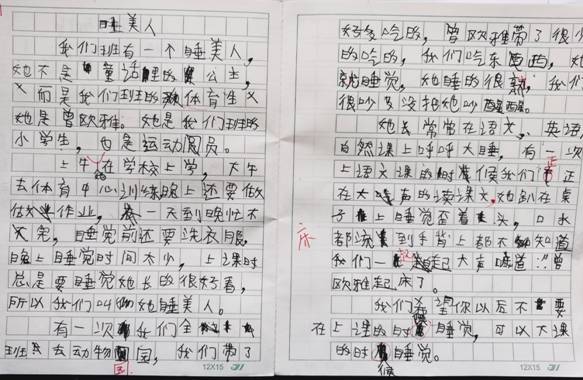 睡美人
我们班有一个睡美人，
她不是童话里的公主，
而是我们班的体育生
她是曾欧雅。她是我们班的
小学生，也是运动员。
上午在学校上学，下午
去体育中心训练晚上还要做
作业，一天到晚忙不
完，睡觉前还要洗衣服，
晚上睡觉时间不少，上课时
总是要睡觉她长的很好看，
所以我们叫她睡美人。
有一次我们全
班去动物园，我们带了
好多吃的，曾欧雅带了很少
的吃的，我们吃东西，她
就睡觉，她睡的很熟，我们
很吵多没把她吵醒。
她去常常在语文，英语
自然课上呼呼大睡，有一次
上语文课的时候我们正
在大声的读课文，她趴在桌
子上睡觉歪着头，口水
都流到手背上都不知道
我们一起大声喊道：曾
欧雅起床了。
我们希望你以后不要
在上课的时睡觉，可以下课
的时候睡觉。
12X15
12X15